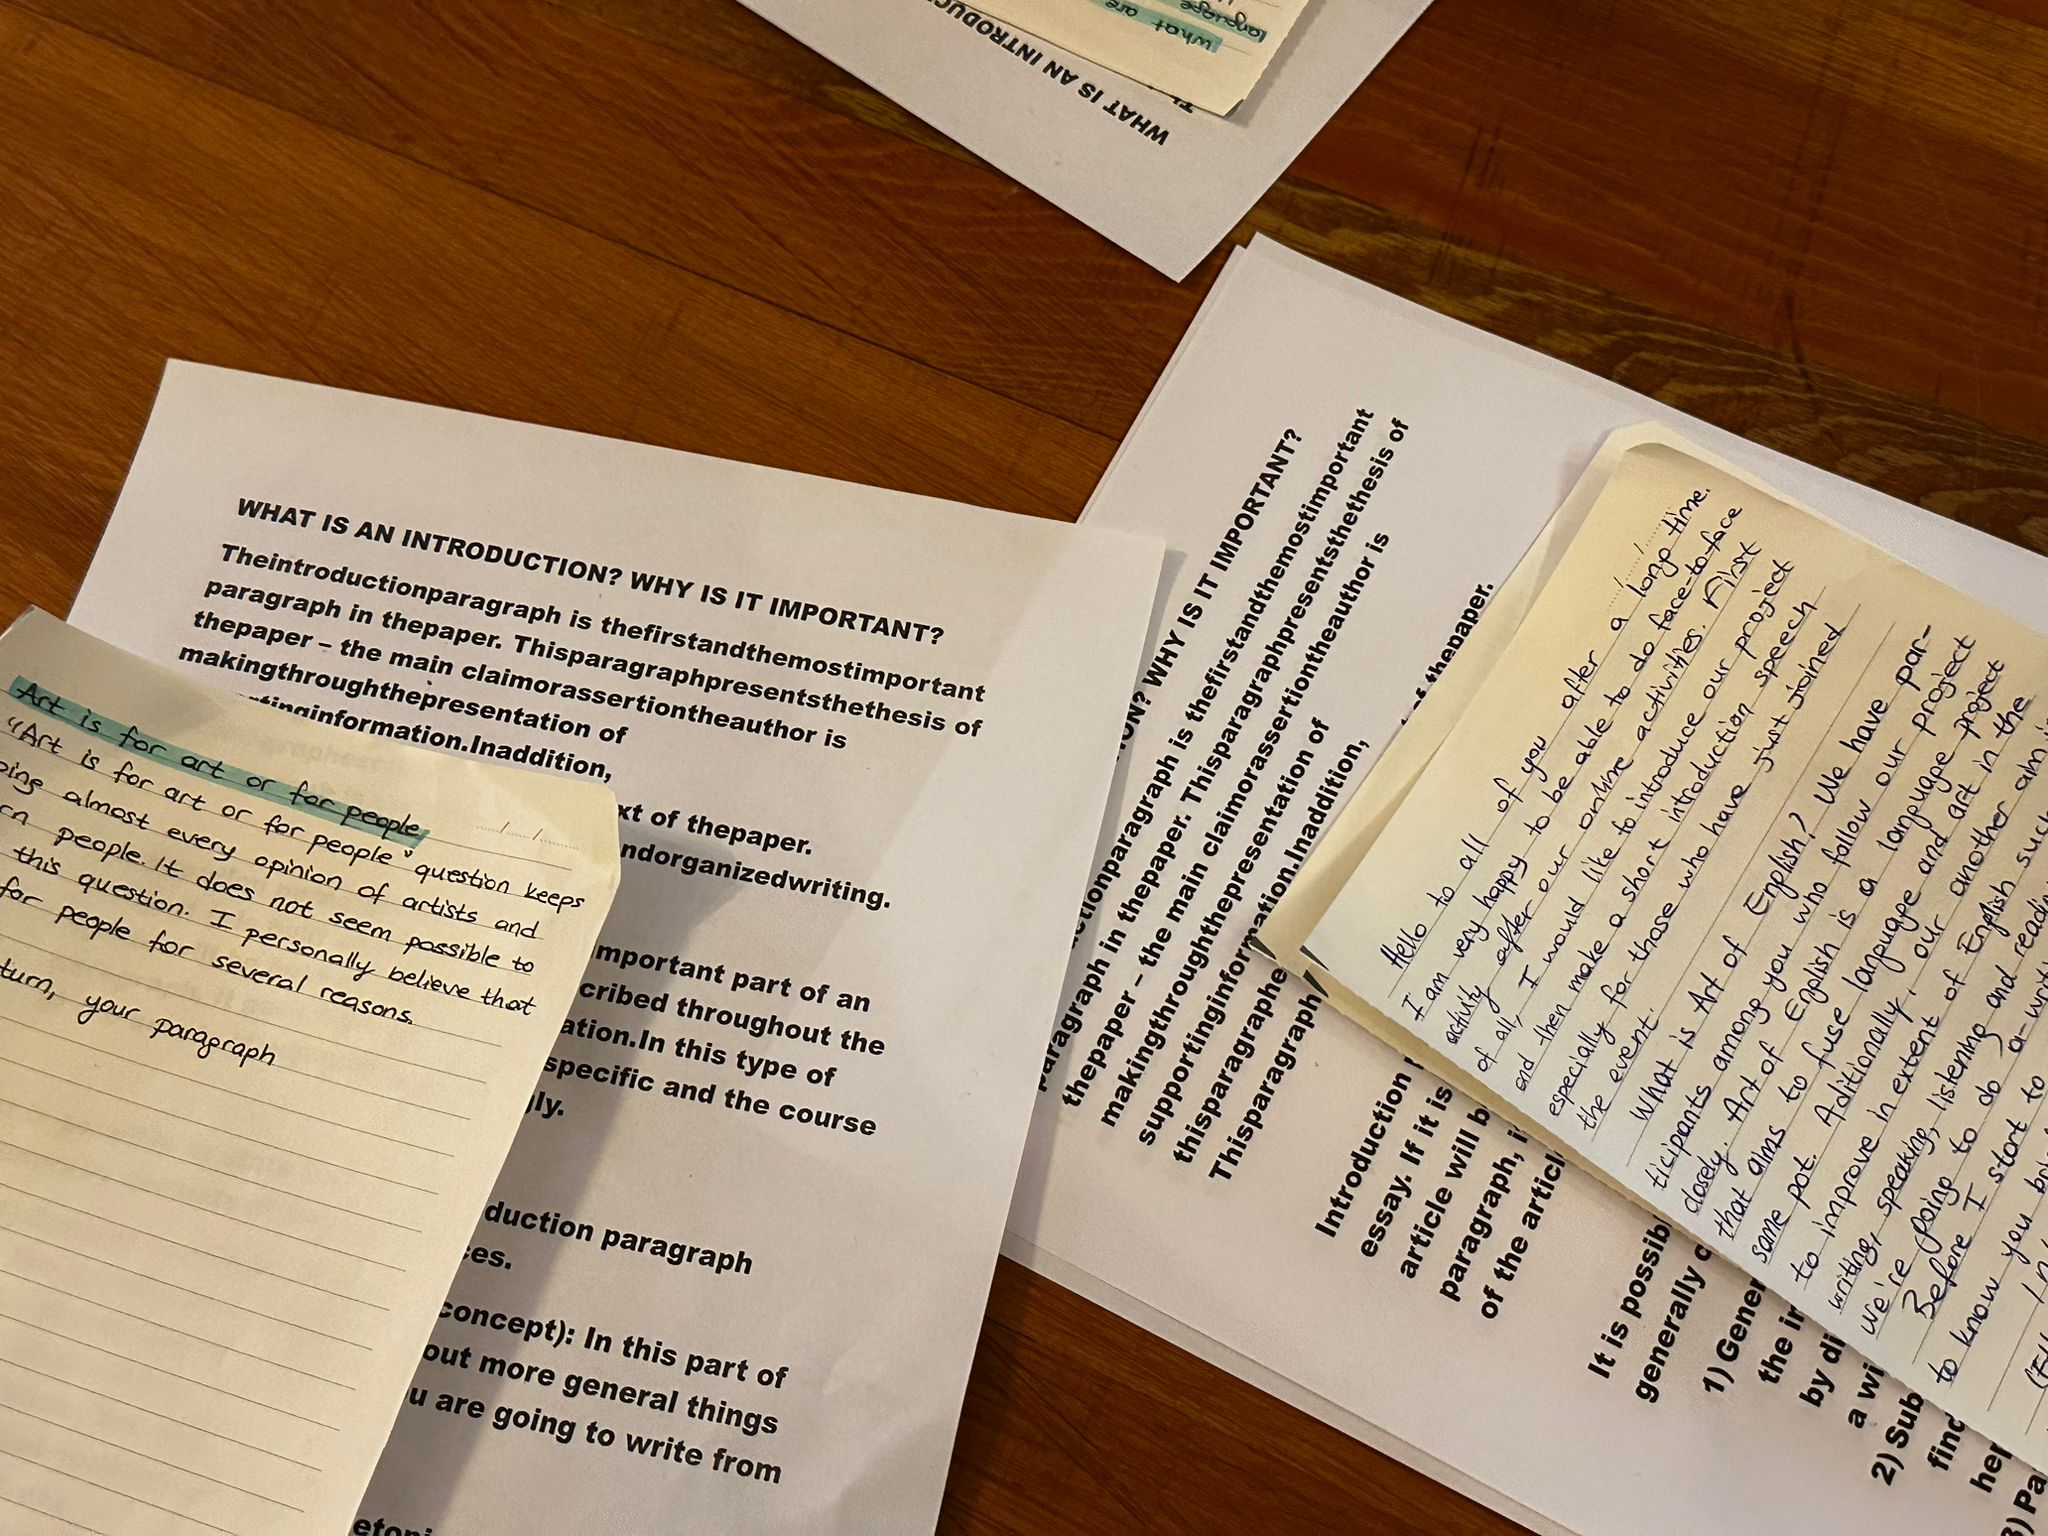 WHAT IS AN INTRODUC
what are
language
WHAT IS AN INTRODUCTION? WHY IS IT IMPORTANT?
Theintroductionparagraph is thefirstandthemostimportant
paragraph in thepaper. Thisparagraphpresentsthethesis of
thepaper – the main claimorassertiontheauthor is
makingthroughthepresentation of
rtinginformation.Inaddition,
xt of thepaper.
ndorganizedwriting.
mportant part of an
cribed throughout the
ation.In this type of
specific and the course
gly.
duction paragraph
ces.
concept): In this part of
out more general things
u are going to write from
Art is for art or for people
"Art is for art or for people" question keeps
oing almost every opinion of artists and
rn people. It does not seem possible to
this question. I personally believe that
for people for several reasons.
turn, your paragraph
TION? WHY IS IT IMPORTANT?
ctionparagraph is thefirstandthemostimportant
paragraph in thepaper. Thisparagraphpresentsthethesis of
thepaper – the main claimorassertiontheauthor is
makingthroughthepresentation of
supportinginformation.Inaddition,
thisparagraphe
of thepaper.
Thisparagraph
Introduction
essay. If it is
article will b
paragraph, i
of the articl
It is possib
generally c
1) Gener
the in
by di
a wi
2) Sub
find
hel
3) Pa
Hello to all of you after a long time.
I am very happy to be able to do face-to-face
activity after our online activities. First
of all, I would like to introduce our project
and then make a short introduction speech
especially for those who have just joined
the event.
What is Art of English? We have par-
ticipants among you who follow our project
closely. Art of English is a language project
that aims to fuse language and art in the
same pot. Aditionally, our another aim is
to improve in extent of English such
writing, speaking, listening and readin
we're going to do a writ
Before I start to
to know you